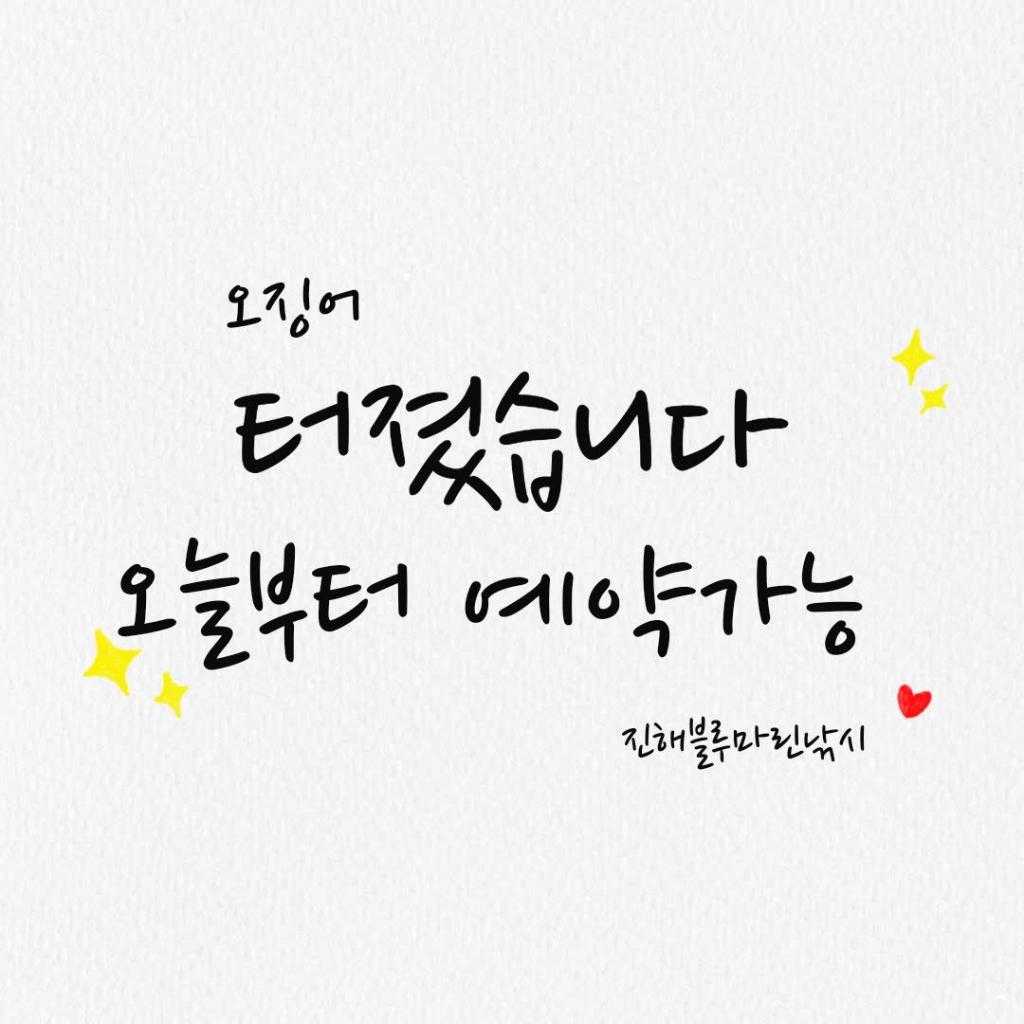 오징어
터졌습니다
오늘부터 예약가능
진해블루마린낚시